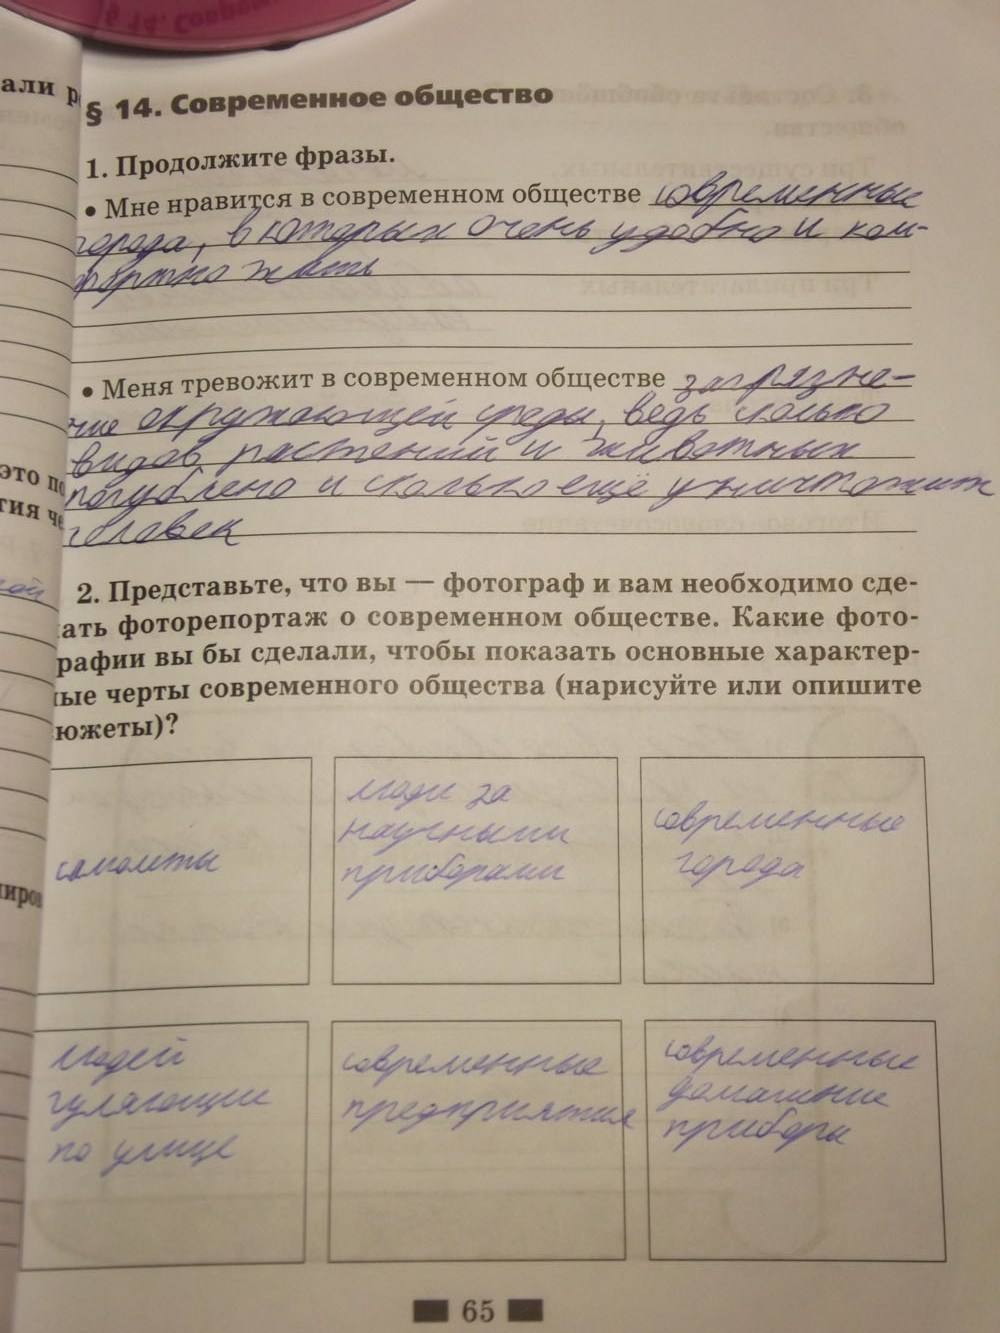 § 14. Современное общество
1. Продолжите фразы.
• Мне нравится в современном обществе современные
города, в которых очень удобно и ком-
фортно жить
• Меня тревожит в современном обществе загрязне-
ние окружающей среды, ведь сколько
видов растений и животных
погублено и сколько ещё уничтожит
человек
2. Представьте, что вы — фотограф и вам необходимо сде-
лать фоторепортаж о современном обществе. Какие фото-
графии вы бы сделали, чтобы показать основные характер-
ные черты современного общества (нарисуйте или опишите
сюжеты)?
самолеты
люди за
научными
приборами
современные
города
людей
гуляющие
по улице
современные
предприятия
современные
домашние
приборы
65
али
это по
тия че
ой
иров